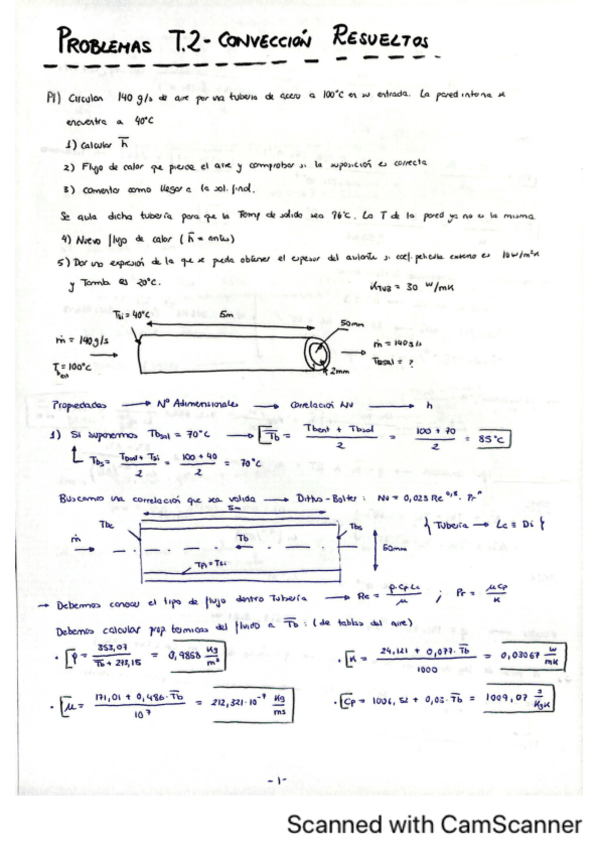 PROBLEMAS T.2 - CONVECCIÓN RESUELTOS
P1) Circulan 140 g/s de aire por una tubería de acero a 100°C en su entrada. La pared interna se
encuentra a 40°C
1) Calcular h̅
2) Flujo de calor que pierde el aire y comprobar si la suposición es correcta
3) Comentar como llegar a la sol. final.
Se aisla dicha tubería para que la Temp de salida sea 76°C. La T de la pared ya no es la misma.
4) Nuevo flujo de calor (h̅ = antes)
5) Dar una expresión de la que se pueda obtener el espesor del aislante si coef. película externo es 10 W/m²K
y Tamb es 20°C.
K_TUB = 30 W/mK
Tsi = 40°C
5m
50mm
ṁ = 140 g/s
ṁ = 140 g/s
T_bent = 100°C
Tbsal = ?
2mm
Propiedades → Nº Adimensionales → Correlación NU → h
1) Si suponemos Tbsal = 70°C → T̅b = (Tbent + Tbsal)/2 = (100 + 70)/2 = 85°C
Tbs = (Tbent + Tsi)/2 = (100 + 40)/2 = 70°C
Buscamos una correlación que sea valida → Dittus-Bolter: Nu = 0,023 Re^0,8 · Pr^n
5m
Tbe
Tbs
{Tubería → Lc = Di}
ṁ
Tb
50mm
Tpi = Tsi
→ Debemos conocer el tipo de flujo dentro Tubería → Re = ; Pr = μCp/K
Debemos calcular prop termicas del fluido a T̅b: (de tablas del aire)
· ρ = 353,07/(T̅b + 273,15) = 0,9858 Kg/m³
· K = (24,121 + 0,077 · T̅b)/1000 = 0,03067 W/mK
· μ = (171,01 + 0,486 · T̅b)/10⁷ = 212,321·10⁻⁷ Kg/ms
· Cp = 1006,52 + 0,03 · T̅b = 1009,07 J/KgK
-1-
Scanned with CamScanner